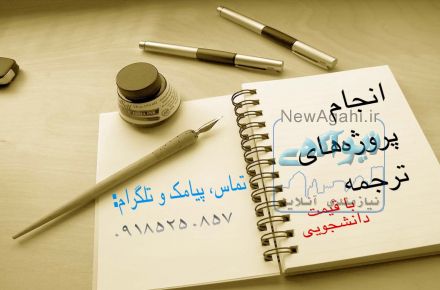 انجام
NewAgahi.ir
پروژه‌های
ترجمه
نیازمندی آنلاین
با قیمت
دانشجویی
تماس، پیامک و تلگرام:
۰۹۱۸۵۲۵۰۸۵۷